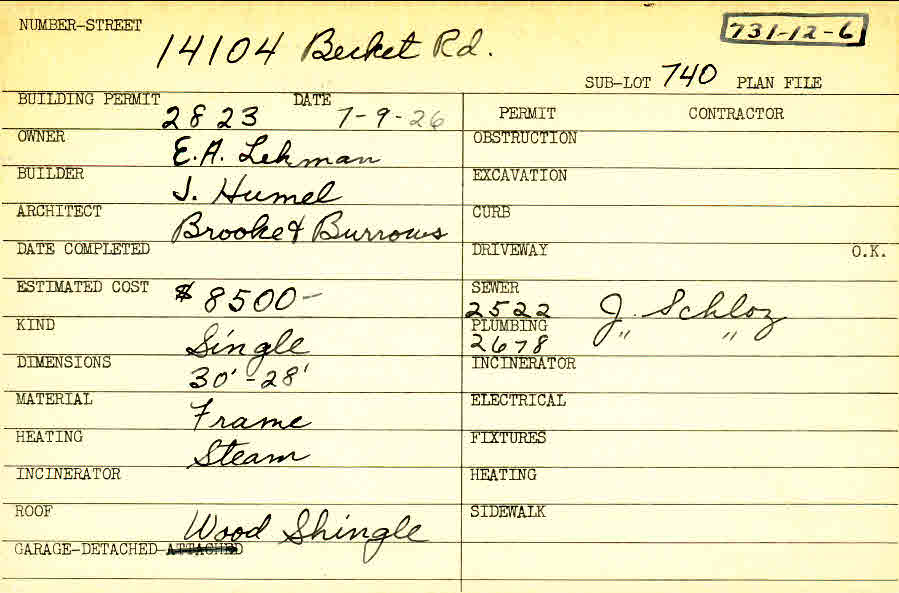 NUMBER-STREET 14104 Becket Rd. 731-12-6
SUB-LOT 740 PLAN FILE
BUILDING PERMIT 2823 DATE 7-9-26
PERMIT CONTRACTOR
OWNER E.A. Lehman
OBSTRUCTION
BUILDER J. Humel
EXCAVATION
ARCHITECT Brooke & Burrows
CURB
DATE COMPLETED
DRIVEWAY O.K.
ESTIMATED COST $8500-
SEWER 2522 J. Schloz
KIND Single
PLUMBING 2678 " "
DIMENSIONS 30'-28'
INCINERATOR
MATERIAL Frame
ELECTRICAL
HEATING Steam
FIXTURES
INCINERATOR
HEATING
ROOF Wood Shingle
SIDEWALK
GARAGE-DETACHED-ATTACHED